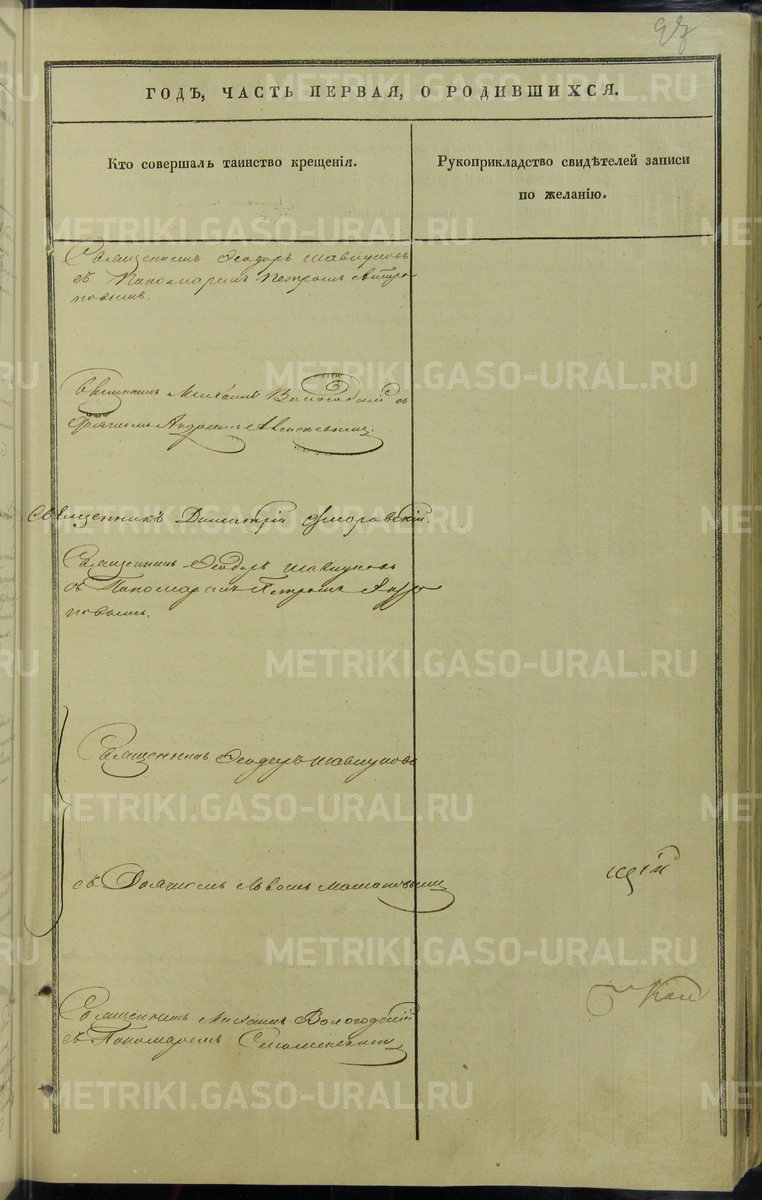 97
ГОДЪ, ЧАСТЬ ПЕРВАЯ, О РОДИВШИХСЯ.
Кто совершалъ таинство крещенія.
Рукоприкладство свидѣтелей записи
по желанію.
Священникъ Ѳеодоръ Шавкуновъ
съ Пономаремъ Петромъ
повымъ.
Священникъ Михаилъ Вологодскій съ
Дьячкомъ Андреемъ
Священникъ Димитрій
Священникъ Ѳеодоръ Шавкуновъ
съ Пономаремъ Петромъ
повымъ.
Священникъ Ѳеодоръ Шавкуновъ
съ Дьячкомъ Львомъ
щій
Священникъ Михаилъ Вологодскій
съ Пономаремъ
METRIKI.GASO-URAL.RU